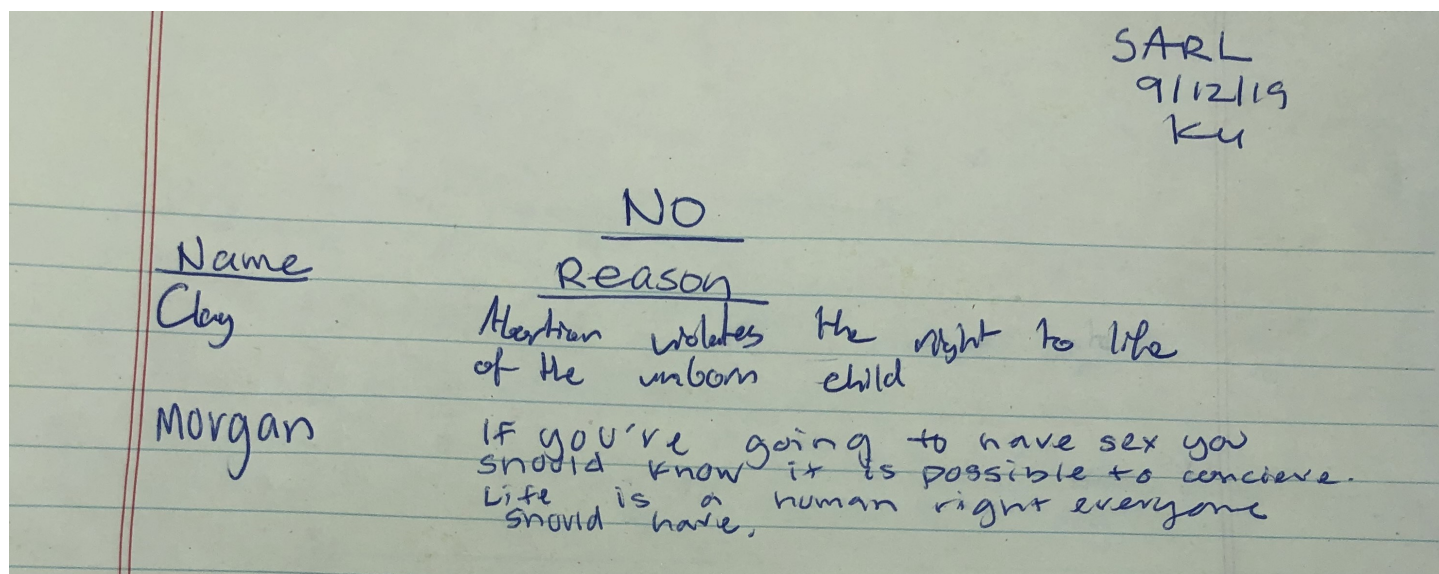 SARL
9/12/19
KU
NO
Name Reason
Clay Abortion violates the right to life
of the unborn child
Morgan If you're going to have sex you
should know it is possible to concieve.
Life is a human right everyone
should have.